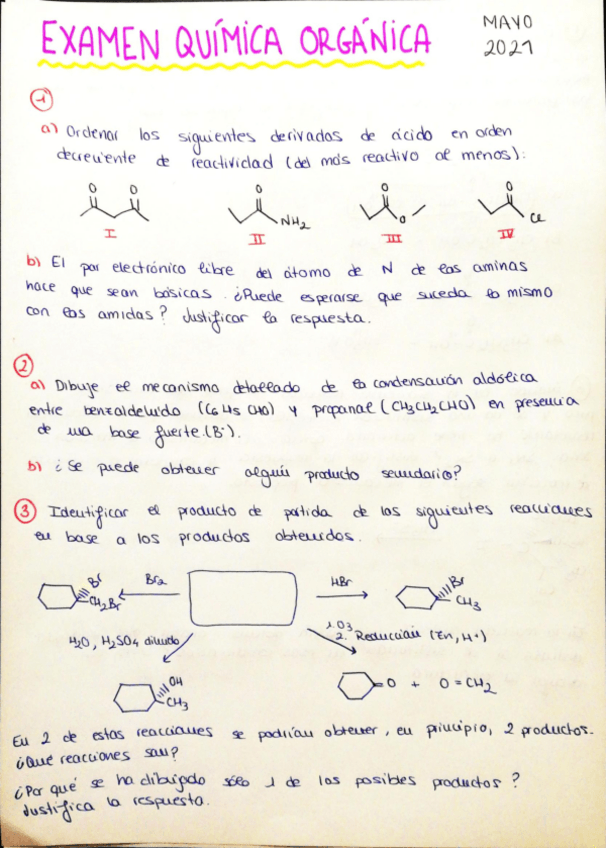 EXAMEN QUÍMICA ORGÁNICA
MAYO
2021
1
a) Ordenar los siguientes derivados de ácido en orden
decreciente de reactividad (del más reactivo al menos):
O O O O O
NH2 O Cl
I II III IV
b) El par electrónico libre del átomo de N de las aminas
hace que sean básicas. ¿Puede esperarse que suceda lo mismo
con las amidas? Justificar la respuesta.
2
a) Dibuje el mecanismo detallado de la condensación aldólica
entre benzaldehído (C6H5CHO) y propanal (CH3CH2CHO) en presencia
de una base fuerte (B-).
b) ¿Se puede obtener algún producto secundario?
3 Identificar el producto de partida de las siguientes reacciones
en base a los productos obtenidos.
Br Br2 HBr Br
CH2Br CH3
H2O, H2SO4 diluido
1. O3
2. Reducción (Zn, H+)
OH
CH3
=O + O=CH2
En 2 de estas reacciones se podrían obtener, en principio, 2 productos.
¿Qué reacciones son?
¿Por qué se ha dibujado sólo 1 de los posibles productos?
Justifica la respuesta.